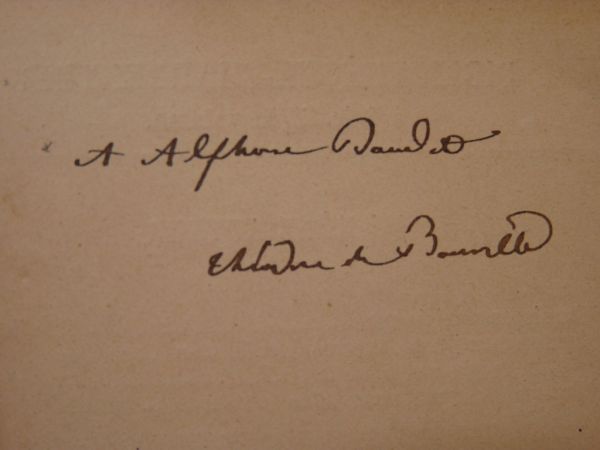 A Alphonse Daudet
Théodore de Banville